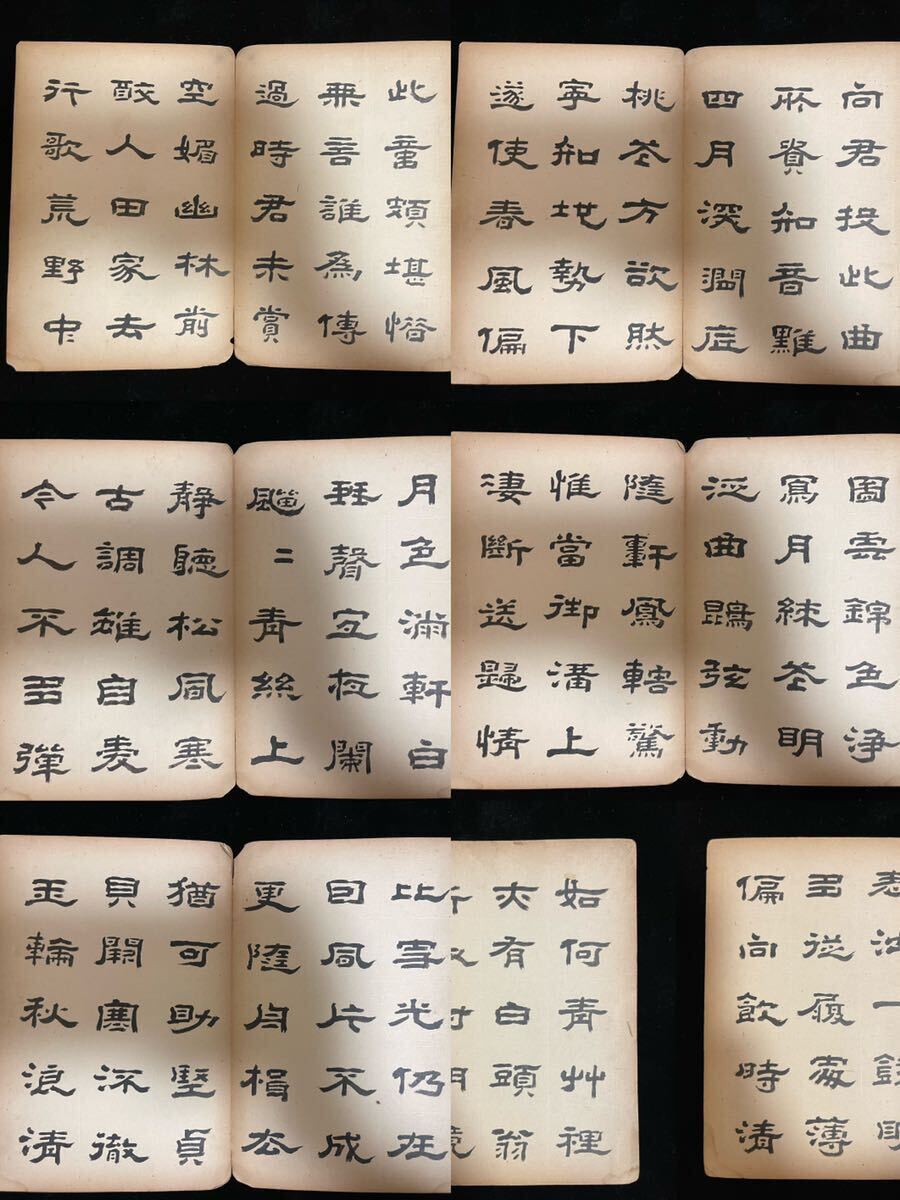 此意頗堪惜
無言誰為傳
過時君未賞
空媚幽林前
醉入田家去
行歌荒野中
向君投此曲
所貴知音難
四月深澗底
桃花方欲然
寧知地勢下
遂使春風偏
月色滿軒白
琴聲宜夜闌
飀〻青絲上
靜聽松風寒
古調雖自愛
今人不多彈
圖雲錦色淨
寫月練花明
泛曲鵾弦動
隨軒鳳轄驚
惟當御溝上
淒斷送歸情
比雪光仍在
因風片不成
更隨舟楫去
猶可助堅貞
貝闕寒流徹
玉輪秋浪清
如何青艸裡
亦有白頭翁
多從履處薄
偏向飲時清